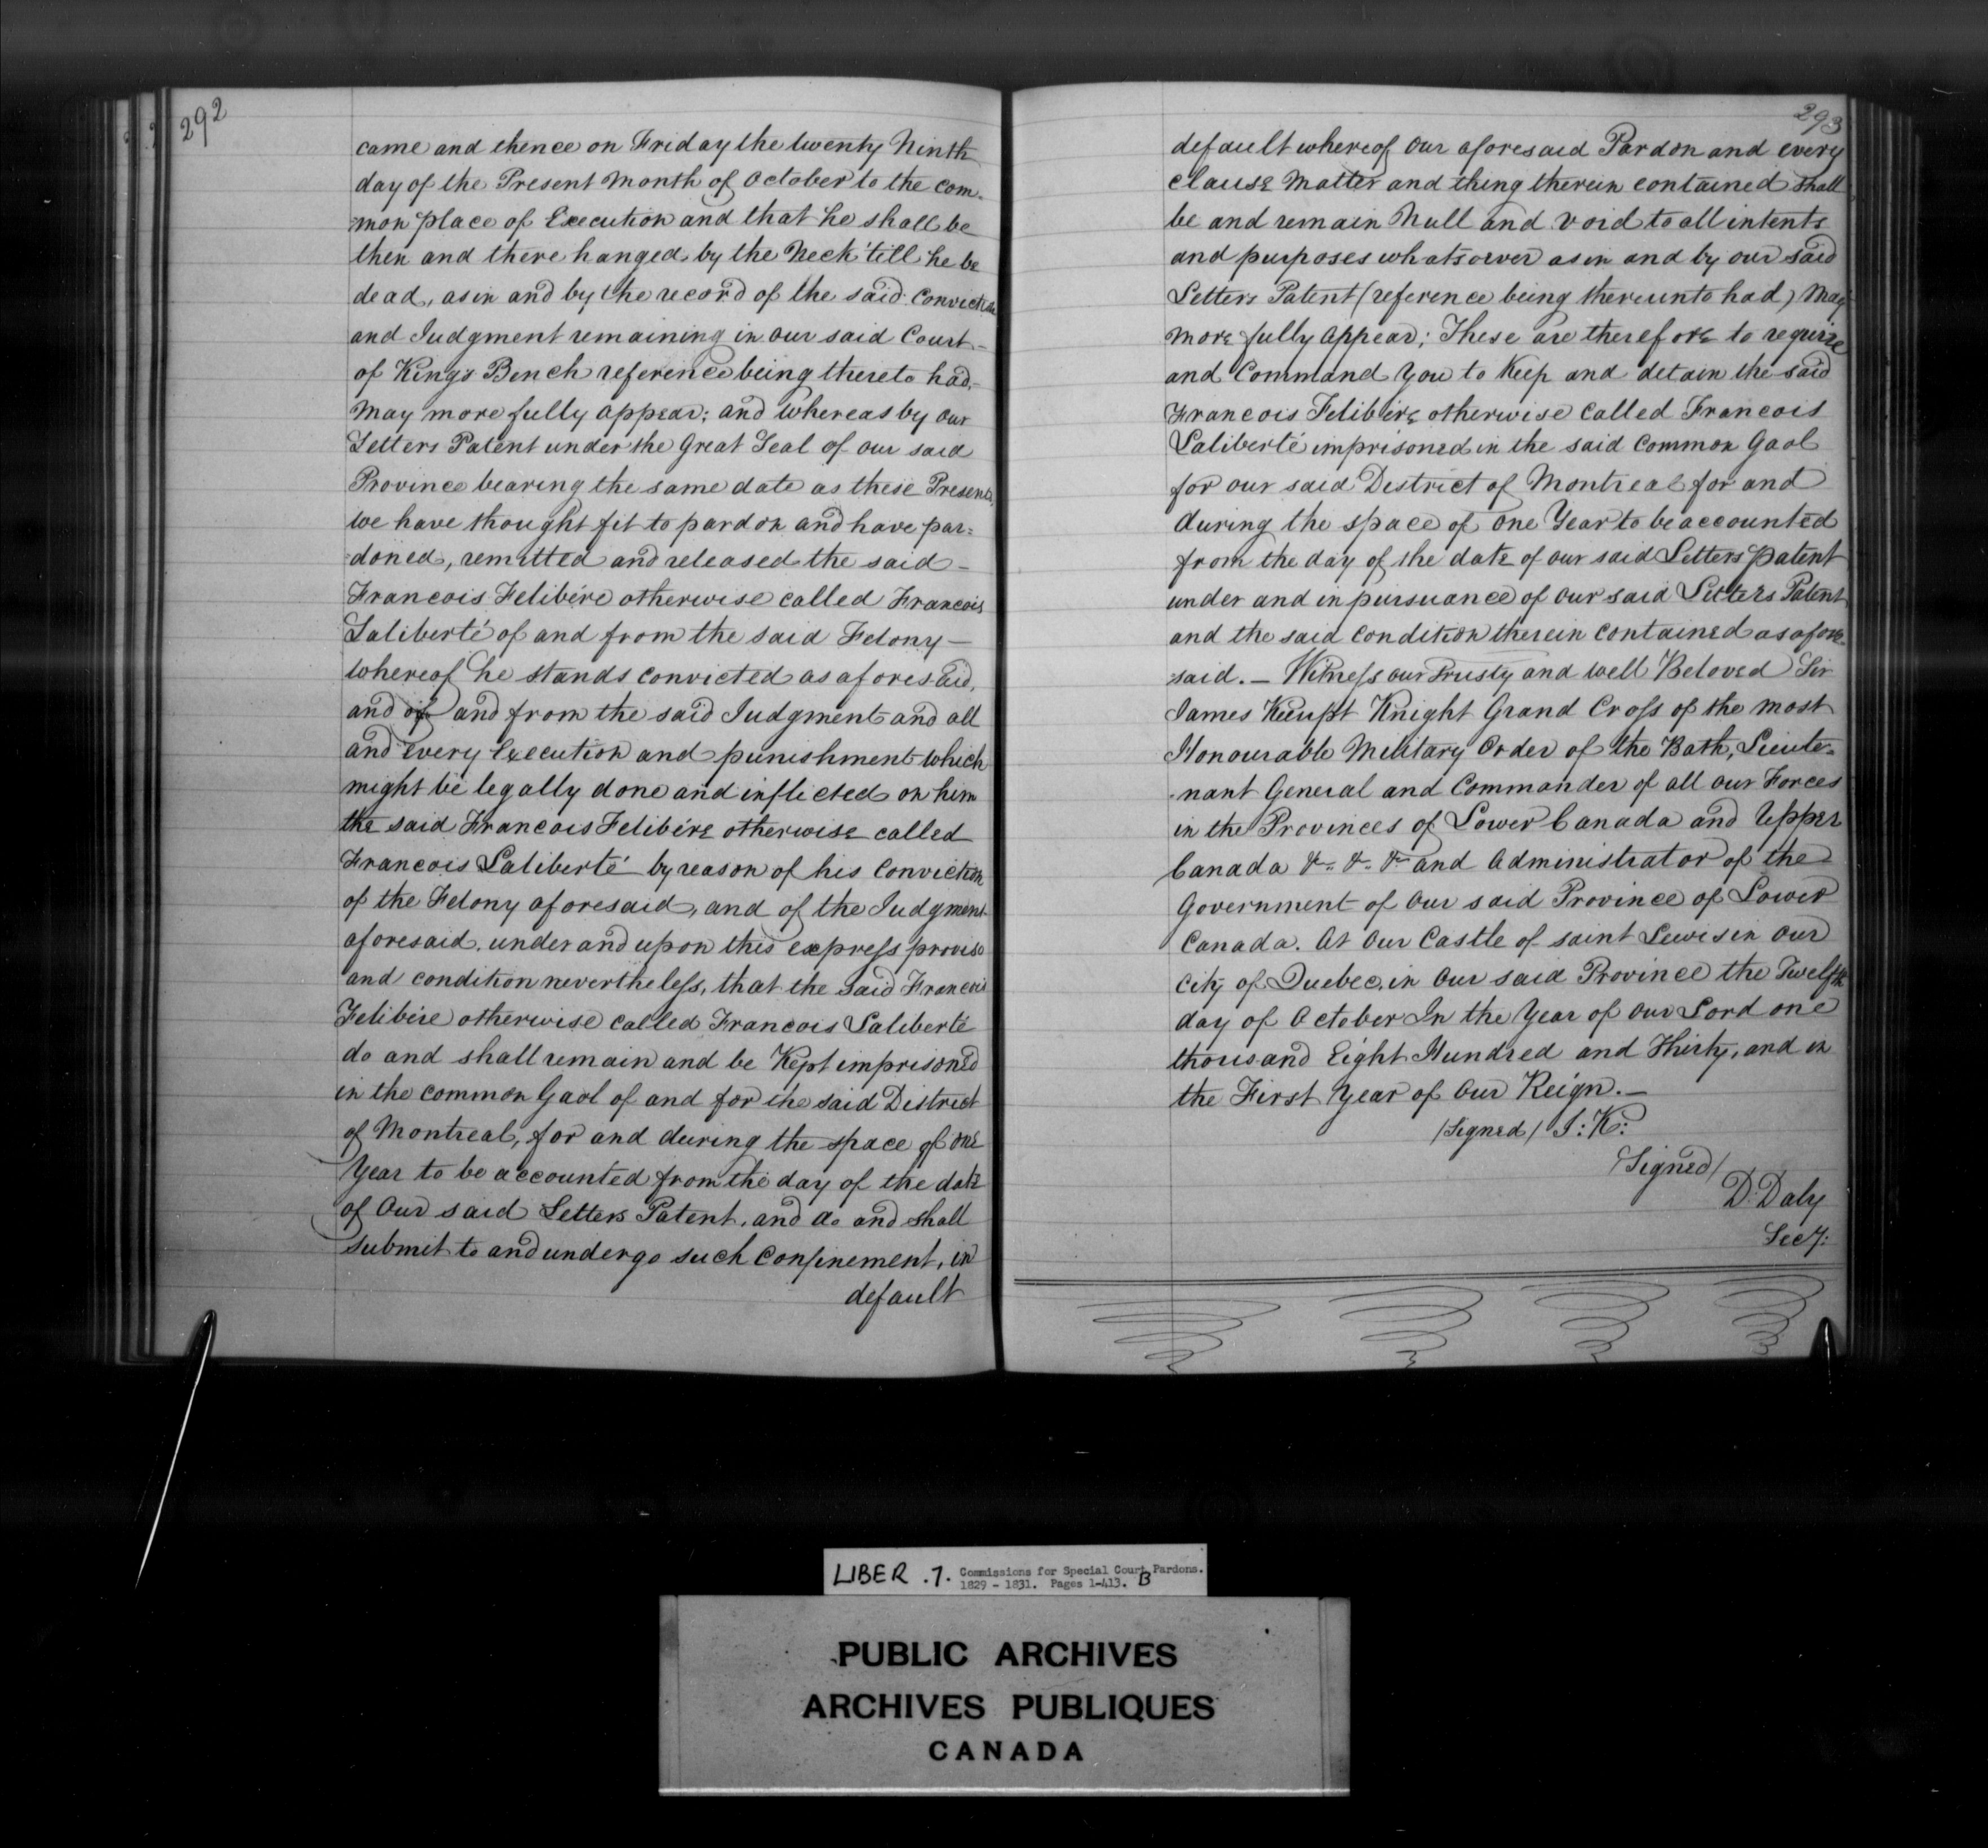 292
came and thence on Friday the twenty Ninth
day of the Present Month of October to the com-
=mon place of Execution and that he shall be
then and there hanged by the Neck 'till he be
dead, as in and by the record of the said Conviction
and Judgment remaining in our said Court –
of King's Bench reference being thereto had, –
May more fully appear; and whereas by our
Letters Patent under the Great Seal of our said
Province bearing the same date as these Presents
we have thought fit to pardon and have par=
=doned, remitted and released the said –
Francois Felibére otherwise called Francois
Laliberté of and from the said Felony –
whereof he stands convicted as aforesaid,
and of and from the said Judgment and all
and every Execution and punishment which
might be legally done and inflicted on him
the said Francois Felibére otherwise called
Francois Laliberté by reason of his Conviction
of the Felony aforesaid, and of the Judgment
aforesaid, under and upon this express proviso
and condition nevertheless, that the said Francois
Felibére otherwise called Francois Laliberté
do and shall remain and be Kept imprisoned
in the common Gaol of and for the said District
of Montreal, for and during the space of one
Year to be accounted from the day of the date
of Our said Letters Patent, and do and shall
submit to and undergo such Confinement, in
default
293
default whereof Our aforesaid Pardon and every
Clause Matter and thing therein contained shall
be and remain Null and void to all intents
and purposes whatsoever as in and by our said
Letters Patent (reference being thereunto had) May
more fully Appear; These are therefore to require
and Command You to Keep and detain the said
Francois Felibére otherwise Called Francois
Laliberté imprisoned in the said Common Gaol
for our said District of Montreal for and
during the space of one Year to be accounted
from the day of the date of our said Letters patent
under and in pursuance of our said Letters Patent
and the said Condition therein contained as afore-
said. – Witness our Trusty and well Beloved Sir
James Kempt Knight Grand Cross of the most
Honourable Military Order of the Bath, Lieute=
-nant General and Commander of all our Forces
in the Provinces of Lower Canada and Upper
Canada &c. &c. &c. and Administrator of the
Government of Our said Province of Lower
Canada. At Our Castle of saint Lewis in Our
City of Quebec, in Our said Province the Twelfth
day of October In the Year of Our Lord one
thousand Eight Hundred and Thirty, and in
the First Year of Our Reign. –
/Signed/ J: K:
/Signed/
D. Daly
Secy:
LIBER .7. Commissions for Special Court Pardons.
1829 - 1831. Pages 1-413. B
PUBLIC ARCHIVES
ARCHIVES PUBLIQUES
CANADA